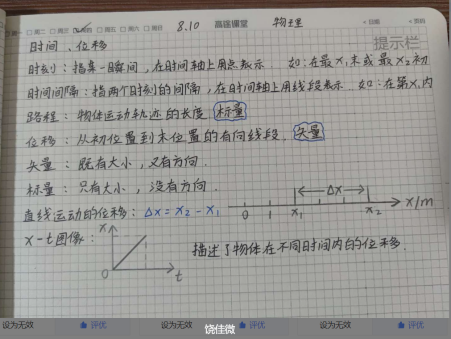 周一 周二 周三 周四 周五 周六 周日 8.10 高途课堂 物理 日期
提示栏
时间、位移
时刻：指某一瞬间，在时间轴上用点表示 如：在最x,末或最x,初
时间间隔：指两个时刻的间隔，在时间轴上用线段表示 如：在第x,内
路程：物体运动轨迹的长度 标量
位移：从初位置到末位置的有向线段. 矢量
矢量：既有大小，又有方向.
标量：只有大小，没有方向.
直线运动的位移：Δx=x₂-x₁
Δx
0 1 x₁ x₂ x/m
x-t图像：
x
0 t
描述了物体在不同时间内的位移.
设为无效 评优 设为无效 评优 设为无效 评优
饶佳微